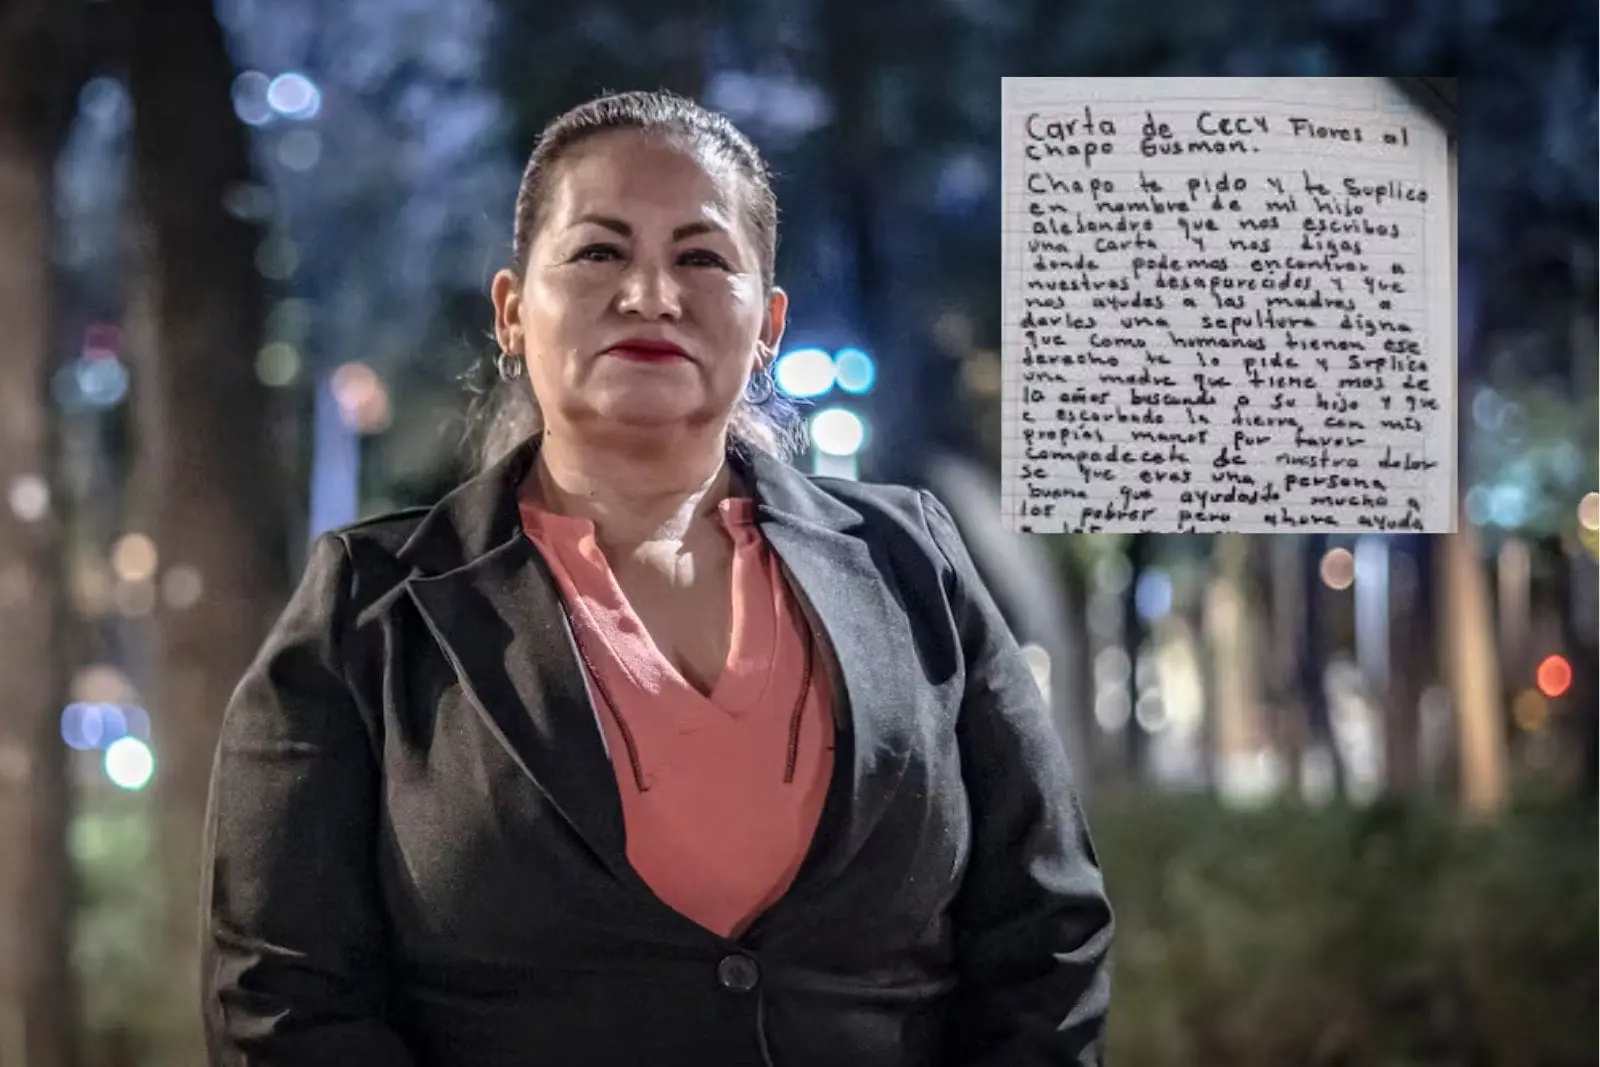 Carta de Cecy Flores al
chapo Gusman.
Chapo te pido y te Suplico
en nombre de mi hijo
alejandro que nos escribas
una carta y nos digas
donde podemos encontrar a
nuestros desaparecidos y que
nos ayudes a las madres a
darles una sepultura digna
que como humanos tienen ese
derecho te lo pide y Suplica
una madre que tiene mas de
10 años buscando a su hijo y que
e escarbado la tierra con mis
propias manos por favor
Compadecete de nuestro dolor
se que eras una persona
buena que ayudaste mucho a
los pobres pero ahora ayuda
a las madres